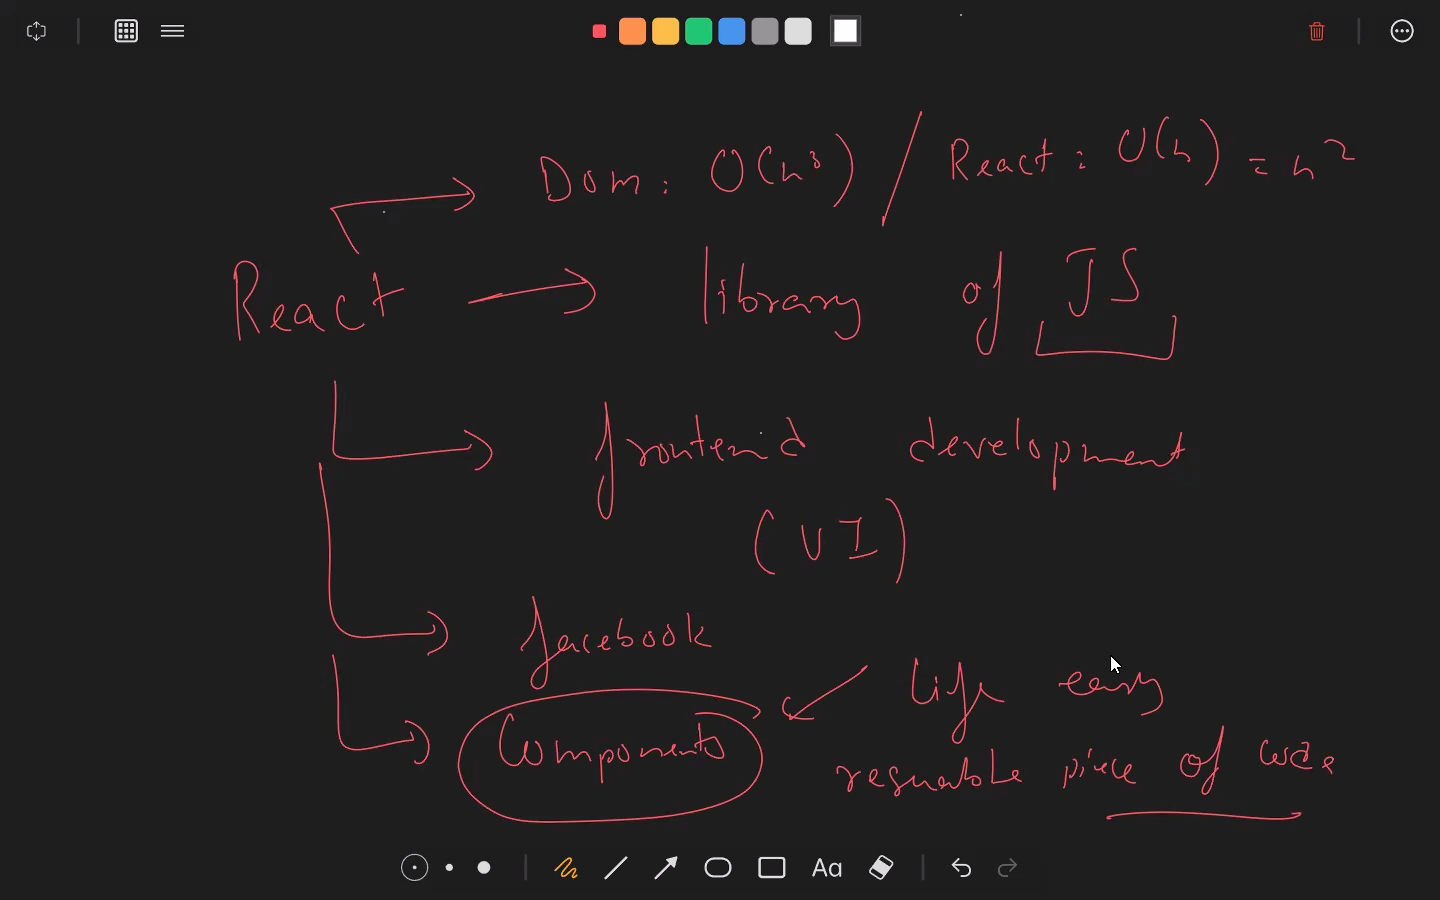 Dom: O(n³) / React: O(n) = n²
React → library of JS
frontend development
(UI)
facebook
Life easy
Components
resuable piece of code
Aa